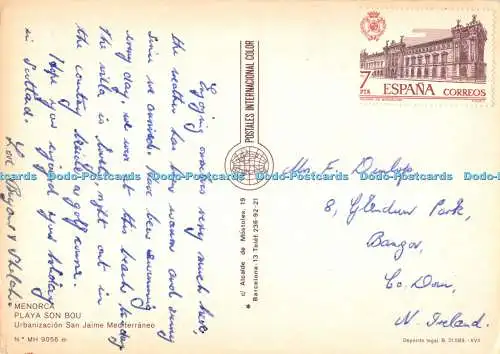 Enjoying ourselves very much here,
the weather has been warm and sunny
since we arrived, have been swimming
every day, we went to this beach today
the villa is lovely right out in
the country beside a golf course.
Hope you enjoyed your holiday
in
Love
MENORCA
PLAYA SON BOU
Urbanización San Jaime Mediterráneo
N.º MH 9056 m
POSTALES INTERNACIONAL COLOR
c/ Alcalde de Móstoles, 19
Barcelona-13 Teléf. 236-92-21
7
PTA
ESPAÑA
CORREOS
Mrs E. Dunlop
8, Glendun Park,
Bangor,
Co. Down,
N. Ireland.
Depósito legal, B. 31.589-XVII
Dodo-Postcards Dodo-Postcards Dodo-Postcards Dodo-Postcards Dodo-Postcards